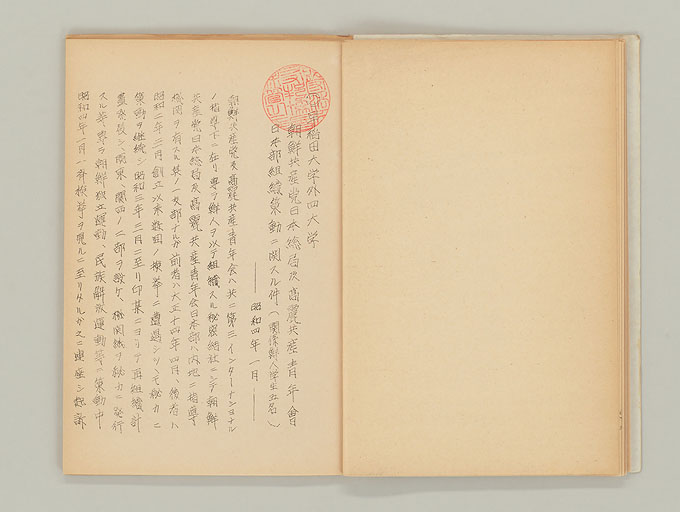 早稲田大学外四大学
朝鮮共産党日本総局及高麗共産青年會
日本部組織策動ニ関スル件(関係鮮人学生五名)
昭和四年一月
朝鮮共産党及高麗共産青年会ハ共ニ第三インターナショナル
ノ指導下ニ在リ専ラ鮮人ヲ以テ組織スル秘密結社ニシテ朝鮮
共産党日本総局及高麗共産青年会日本部ハ内地ニ指導
機関ヲ有スル其ノ一支部ナルガ前者ハ大正十四年四月、後者ハ
昭和二年二月創立以来数回ノ検挙ニ遭遇シツヽモ秘カニ
策動ヲ継続シ昭和三年三月ニ至リ印某ニヨリテ再組織計
畫セラレシ、関東、関西ノ一部ヲ設ケ、機関紙ヲ秘カニ発行
スル等専ラ朝鮮独立運動、民族解放運動等ニ策動中
昭和四年一月一斉検挙ヲ見ルニ至リタルガ之ニ連座シ起訴